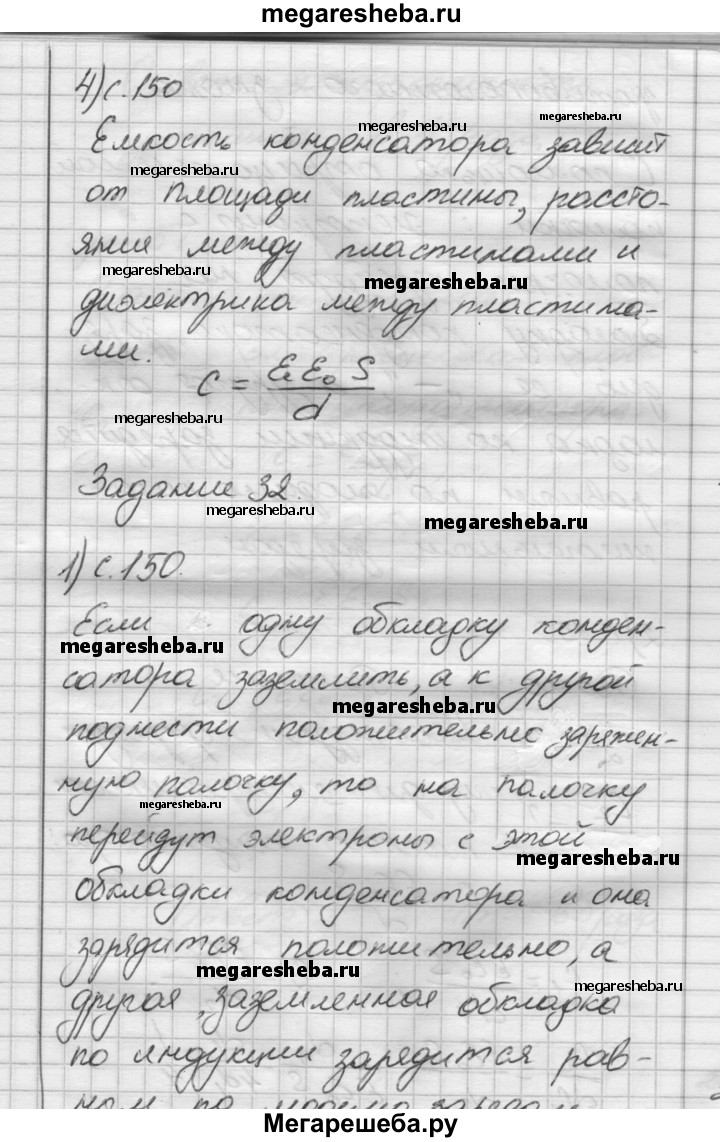 megaresheba.ru
4) с. 150
megaresheba.ru
megaresheba.ru
Емкость конденсатора зависит
megaresheba.ru
от площади пластины, рассто-
яния между пластинами и
megaresheba.ru
megaresheba.ru
диэлектрика между пластина-
ми.
C = ε ε₀ S / d
megaresheba.ru
Задание 32.
megaresheba.ru
megaresheba.ru
1) с. 150.
Если одну обкладку конден-
megaresheba.ru
сатора заземлить, а к другой
megaresheba.ru
поднести положительно заряжен-
ную палочку, то на палочку
megaresheba.ru
перейдут электроны с этой
megaresheba.ru
обкладки конденсатора и она
зарядится положительно, а
megaresheba.ru
megaresheba.ru
другая, заземленная обкладка
по индукции зарядится рав-
ным по
Мегарешеба.ру